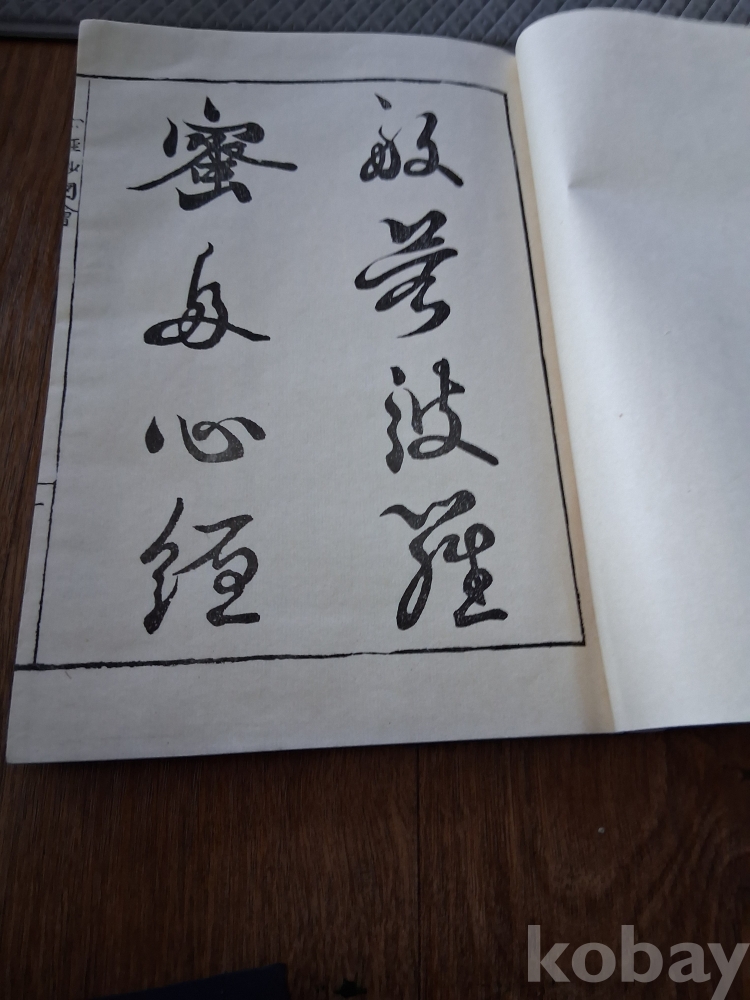 般若波羅
蜜多心經
kobay